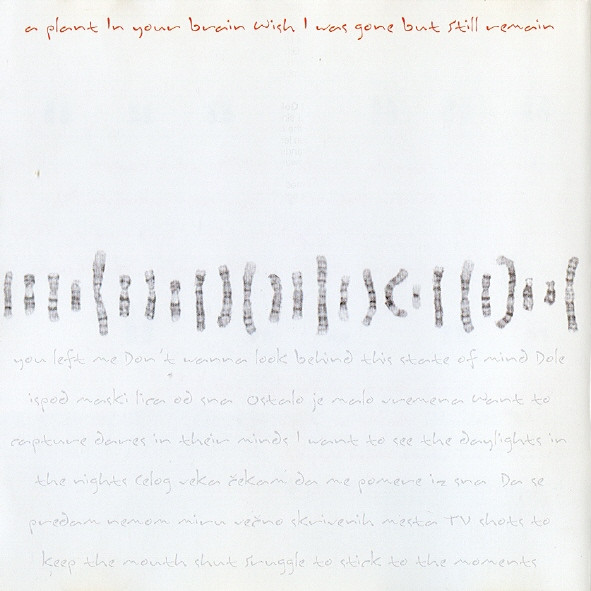 a plant In your brain wish I was gone but still remain
you left me Don't wanna look behind this state of mind Dole
ispod maski lica od sna Ostalo je malo vremena want to
capture dares in their minds I want to see the daylights in
the nights Celog veka čekam da me pomere iz sna Da se
predam nemom miru večno skrivenih mesta TV shots to
keep the mouth shut Sruggle to stick to the moments